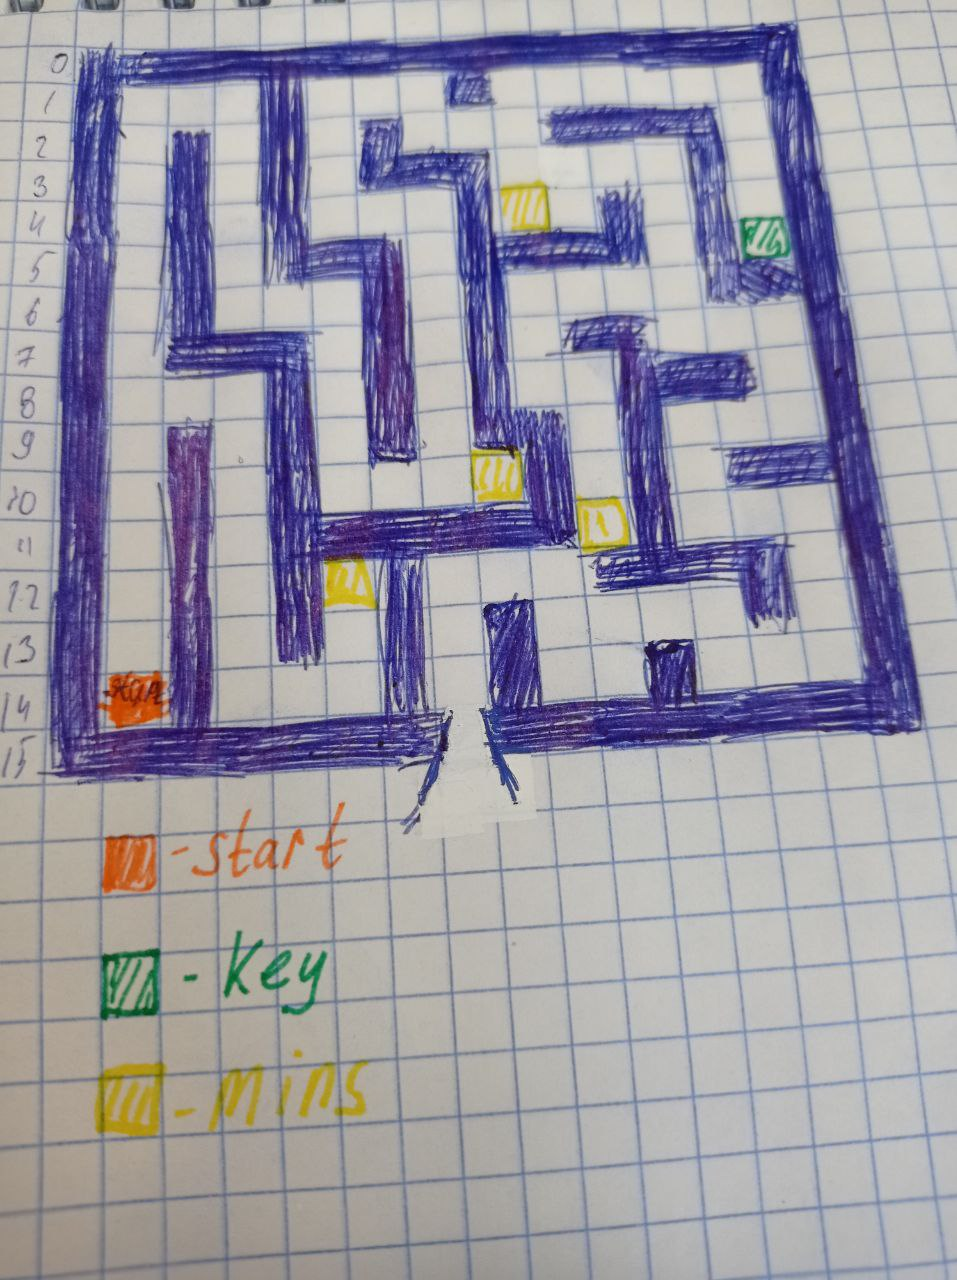 0
1
2
3
4
5
6
7
8
9
10
11
12
13
14
15
start
-start
-Key
-mins